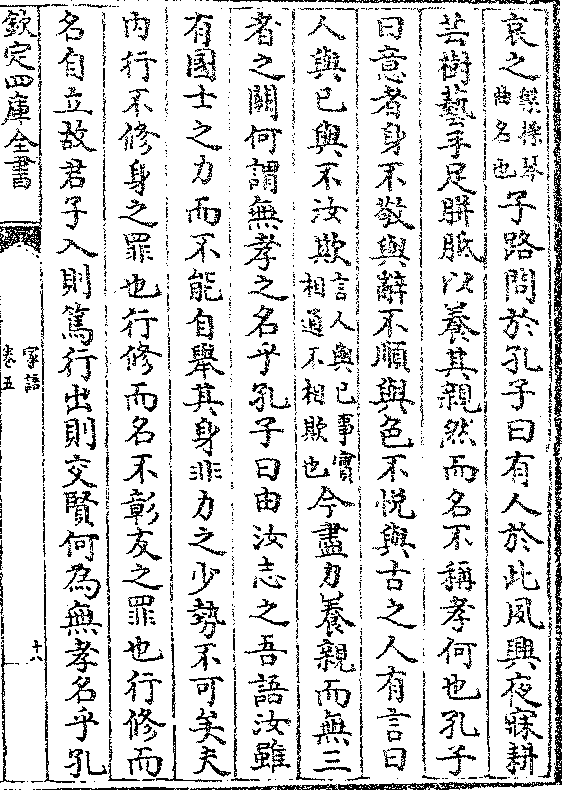 哀之槃操琴曲名也子路問於孔子曰有人於此夙興夜寐耕
芸樹藝手足胼胝以養其親然而名不稱孝何也孔子
曰意者身不敬與辭不順與色不悅與古之人有言曰
人與已與不汝欺言人與已事實相通不相欺也今盡力養親而無三
者之闕何謂無孝之名乎孔子曰由汝志之吾語汝雖
有國士之力而不能自舉其身非力之少勢不可矣夫
内行不修身之罪也行修而名不彰友之罪也行修而
名自立故君子入則篤行出則交賢何為無孝名乎孔
欽定四庫全書
家語
卷五
十八